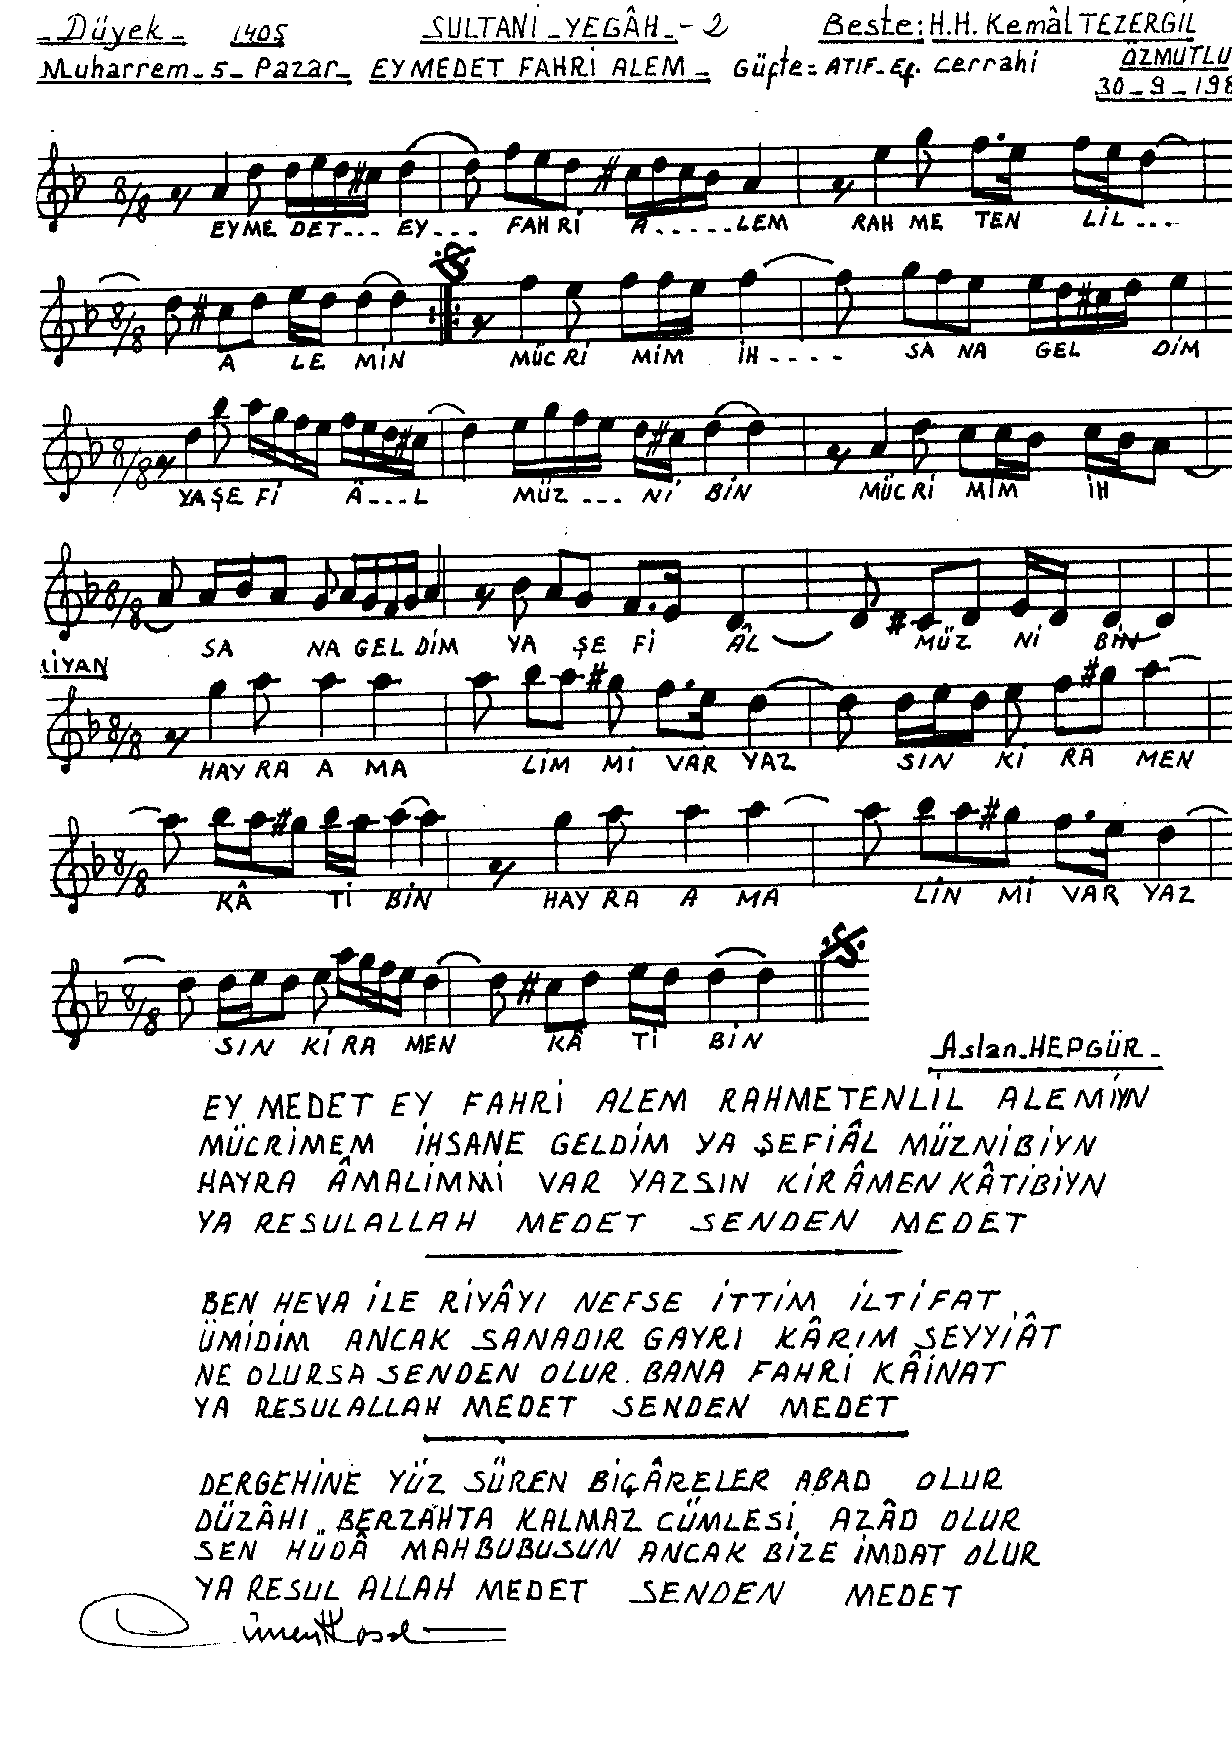 Düyek 1405 SULTANİ YEGÂH - 2 Beste: H.H. Kemâl TEZERGİL
Muharrem 5 Pazar EY MEDET FAHRİ ALEM Güfte: ATIF Ef. Cerrahi ÖZMUTLU
30-9-198
8/8
EY ME DET... EY... FAH Rİ A.....LEM RAH ME TEN LİL...
8/8
A LE MİN MÜC Rİ MİM İH.... SA NA GEL DİM
8/8
YA ŞE Fİ Â...L MÜZ... Nİ BİN MÜC Rİ MİM İH
8/8
SA NA GEL DİM YA ŞE Fİ ÂL MÜZ Nİ BİN
LİYAN
8/8
HAY RA A MA LİM Mİ VAR YAZ SIN Kİ RA MEN
8/8
KÂ Tİ BİN HAY RA A MA LİN Mİ VAR YAZ
8/8
SIN Kİ RA MEN KÂ Tİ BİN
Aslan HEPGÜR
EY MEDET EY FAHRİ ALEM RAHMETENLİL ALEMİYN
MÜCRİMEM İHSANE GELDİM YA ŞEFİÂL MÜZNİBİYN
HAYRA ÂMALİMMİ VAR YAZSIN KİRÂMEN KÂTİBİYN
YA RESULALLAH MEDET SENDEN MEDET
BEN HEVA İLE RİYÂYI NEFSE İTTİM İLTİFAT
ÜMİDİM ANCAK SANADIR GAYRI KÂRIM SEYYİÂT
NE OLURSA SENDEN OLUR BANA FAHRİ KÂİNAT
YA RESULALLAH MEDET SENDEN MEDET
DERGEHİNE YÜZ SÜREN BİÇÂRELER ABAD OLUR
DÜZÂHI BERZAHTA KALMAZ CÜMLESİ AZÂD OLUR
SEN HUDÂ MAHBUBUSUN ANCAK BİZE İMDAT OLUR
YA RESUL ALLAH MEDET SENDEN MEDET